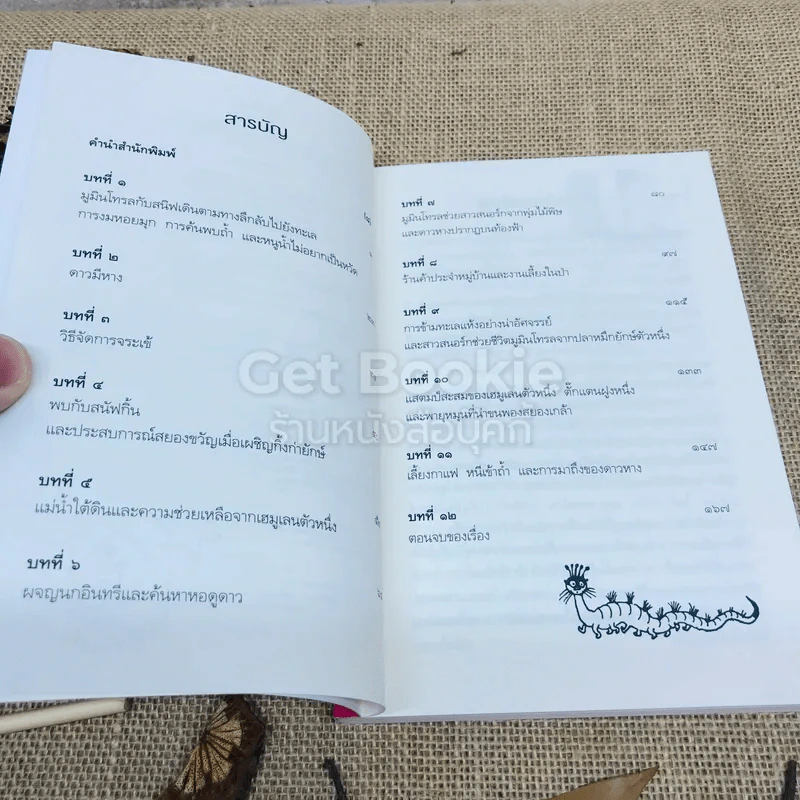 สารบัญ
คำนำสำนักพิมพ์
บทที่ ๑
มูมินโทรลกับสนิฟเดินตามทางลึกลับไปยังทะเล
การงมหอยมุก การค้นพบถ้ำ และหนูน้ำไม่อยากเป็นหวัด
บทที่ ๒
ดาวมีหาง
บทที่ ๓
วิธีจัดการจระเข้
บทที่ ๔
พบกับสนัฟกิ้น
และประสบการณ์สยองขวัญเมื่อเผชิญกิ้งก่ายักษ์
บทที่ ๕
แม่น้ำใต้ดินและความช่วยเหลือจากเฮมูเลนตัวหนึ่ง
บทที่ ๖
ผจญนกอินทรีและค้นหาหอดูดาว
บทที่ ๗ ๘๐
มูมินโทรลช่วยสาวสนอร์กจากพุ่มไม้พิษ
และดาวหางปรากฏบนท้องฟ้า
บทที่ ๘ ๙๗
ร้านค้าประจำหมู่บ้านและงานเลี้ยงในป่า
บทที่ ๙ ๑๑๕
การข้ามทะเลแห้งอย่างน่าอัศจรรย์
และสาวสนอร์กช่วยชีวิตมูมินโทรลจากปลาหมึกยักษ์ตัวหนึ่ง
บทที่ ๑๐ ๑๓๓
แสตมป์สะสมของเฮมูเลนตัวหนึ่ง ตั๊กแตนฝูงหนึ่ง
และพายุหมุนที่น่าขนพองสยองเกล้า
บทที่ ๑๑ ๑๔๗
เลี้ยงกาแฟ หนีเข้าถ้ำ และการมาถึงของดาวหาง
บทที่ ๑๒ ๑๖๗
ตอนจบของเรื่อง
Get Bookie
ร้านหนังสือบุ๊คกี้